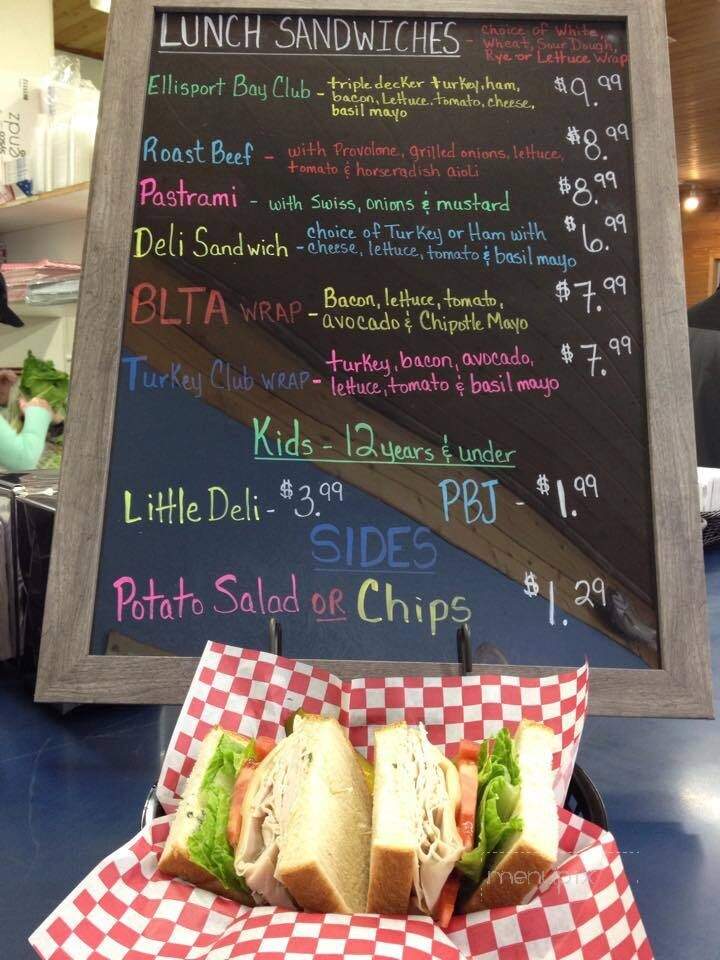 LUNCH SANDWICHES - choice of White,
Wheat, Sour Dough,
Rye or Lettuce Wrap
Ellisport Bay Club - triple decker turkey, ham,
bacon, Lettuce, tomato, cheese,
basil mayo
$9.99
Roast Beef - with Provolone, grilled onions, lettuce,
tomato & horseradish aioli
$8.99
Pastrami - with Swiss, onions & mustard $8.99
Deli Sandwich - choice of Turkey or Ham with
cheese, lettuce, tomato & basil mayo
$6.99
BLTA WRAP - Bacon, lettuce, tomato,
avocado & Chipotle Mayo
$7.99
Turkey Club WRAP - turkey, bacon, avocado,
lettuce, tomato & basil mayo
$7.99
Kids - 12 years & under
Little Deli - $3.99 PBJ - $1.99
SIDES
Potato Salad OR Chips $1.29
menupix